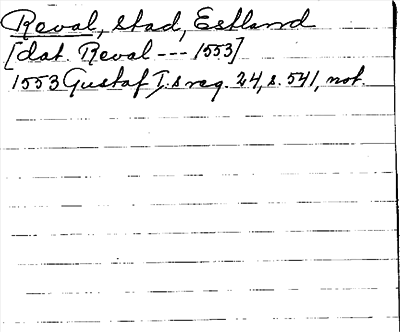 Reval, stad, Estland
[dat. Reval --- 1553]
1553 Gustaf I:s reg. 24, s. 541, not.